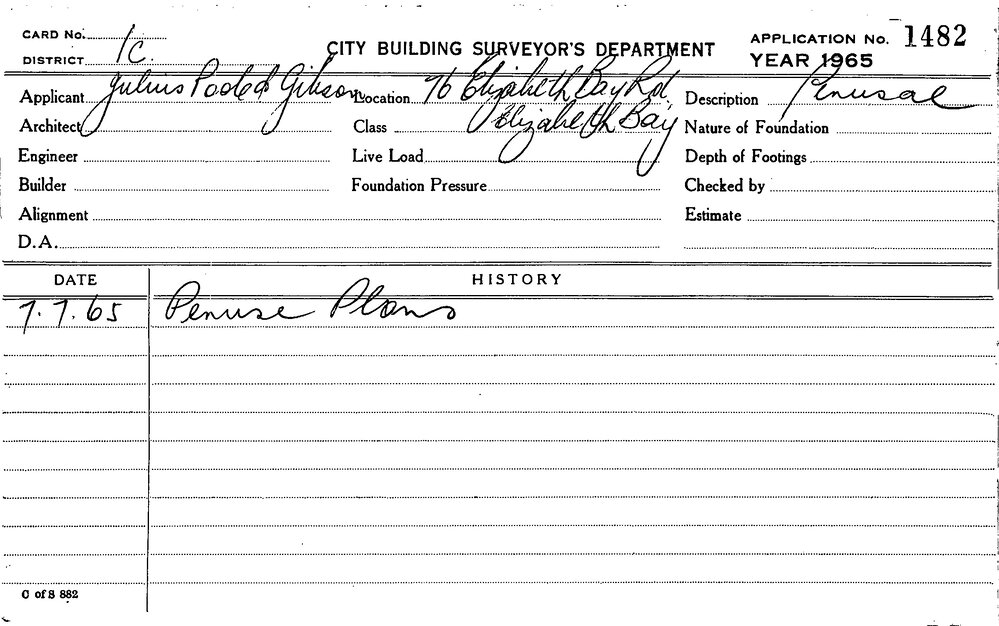 CARD No.
DISTRICT 1C.
CITY BUILDING SURVEYOR'S DEPARTMENT
APPLICATION No. 1482
YEAR 1965
Applicant Julius Poole & Gibson
Location 76 Elizabeth Bay Rd.
Elizabeth Bay
Description Perusal
Architect
Class
Nature of Foundation
Engineer
Live Load
Depth of Footings
Builder
Foundation Pressure
Checked by
Alignment
Estimate
D.A.
DATE HISTORY
7.7.65 Peruse Plans
C of S 882